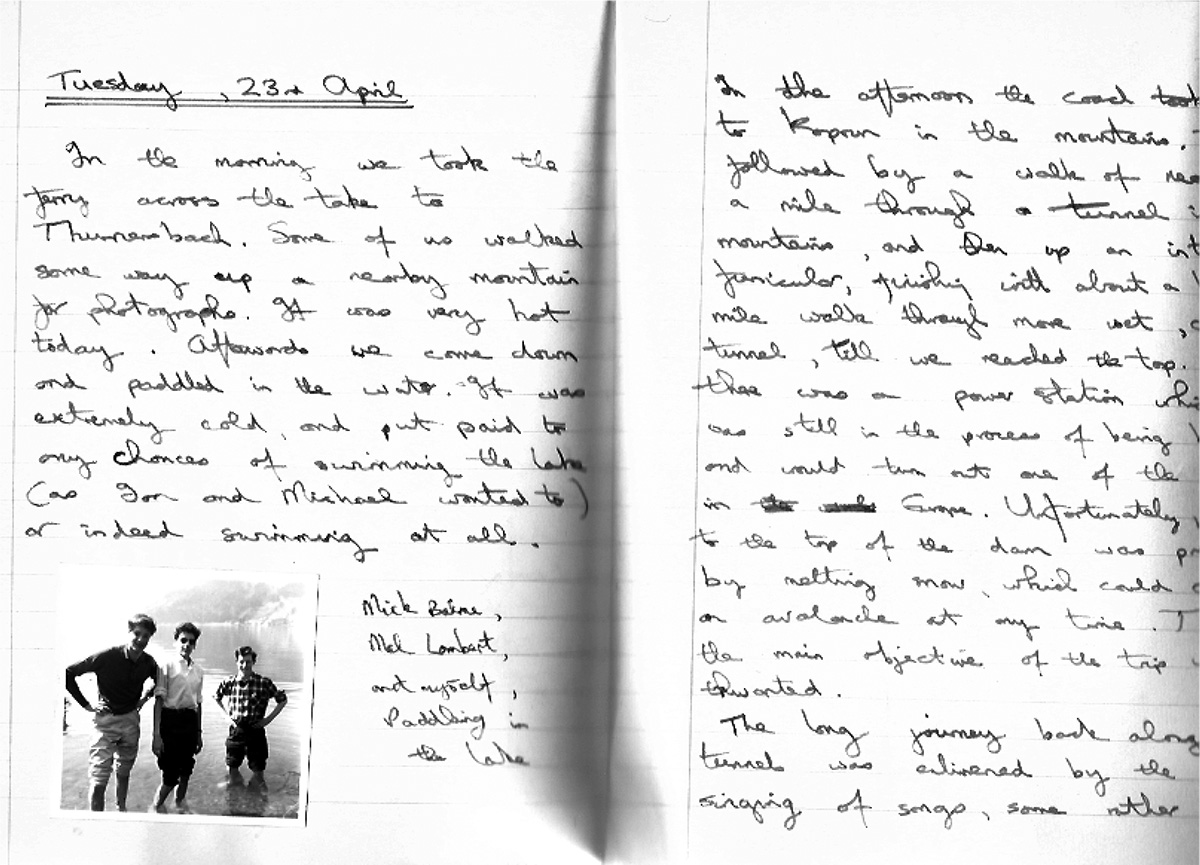 Tuesday, 23rd April
In the morning we took the
ferry across the lake to
Thumersbach. Some of us walked
some way up a nearby mountain
for photographs. It was very hot
today. Afterwards we came down
and paddled in the water. It was
extremely cold, and put paid to
any chances of swimming the lake
(as Ian and Michael wanted to)
or indeed swimming at all.
Mick
Mel Lambert,
and myself,
Paddling in
the lake
In the afternoon the coach took
to Kaprun in the mountains.
followed by a walk of
a mile through a tunnel
mountains, and then up an
funicular, finishing with about a
mile walk through more wet,
tunnel, till we reached the top.
there was a power station
was still in the process of being
and would turn out one of the
in Europe. Unfortunately
to the top of the dam was
by melting snow, which could
an avalanche at any time.
the main objective of the trip
thwarted.
The long journey back along
tunnels was enlivened by the
singing of songs, some rather